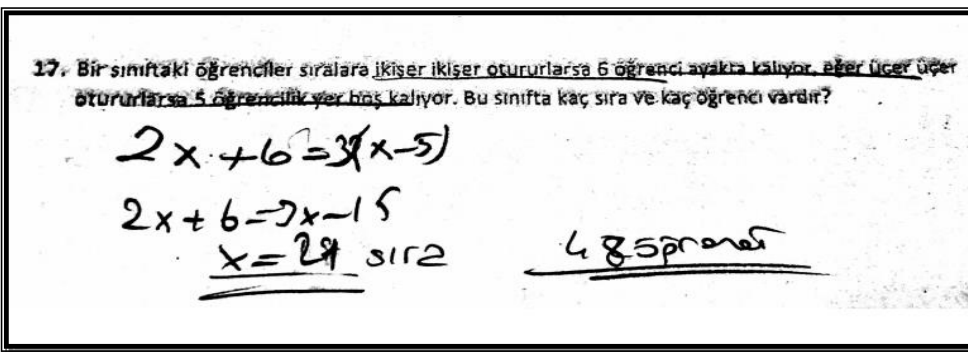 17. Bir sınıftaki öğrenciler sıralara ikişer ikişer otururlarsa 6 öğrenci ayakta kalıyor, eğer üçer üçer
otururlarsa 5 öğrencilik yer boş kalıyor. Bu sınıfta kaç sıra ve kaç öğrenci vardır?
2x+6=3(x-5)
2x+6=3x-15
x=21 sıra 48 öğrenci